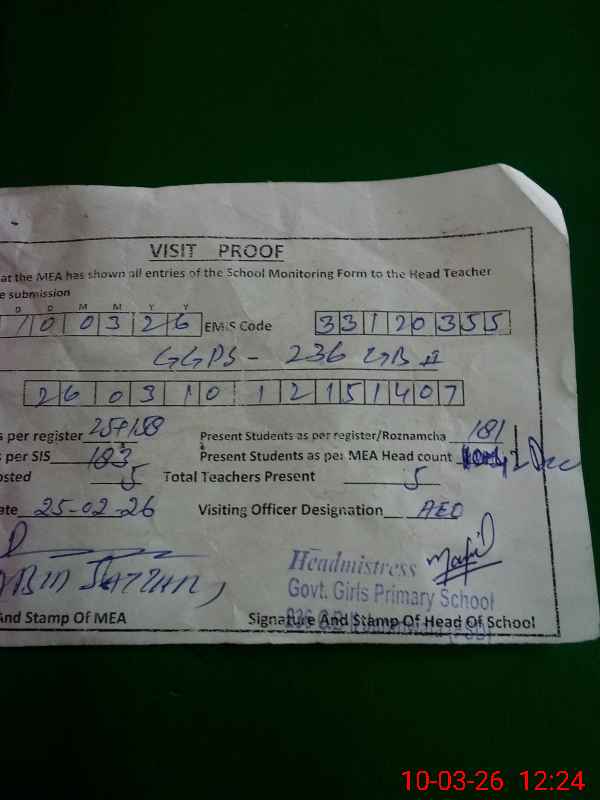 VISIT PROOF
at the MEA has shown all entries of the School Monitoring Form to the Head Teacher
e submission
D D M M Y Y
1 0 0 3 2 6 EMIS Code 3 3 1 2 0 3 5 5
GGPS - 236 GB II
26 03 10 1 2 1 5 1 4 0 7
s per register Present Students as per register/Roznamcha 181
s per SIS 183 Present Students as per MEA Head count
osted 5 Total Teachers Present 5
ate 25-02-26 Visiting Officer Designation AEO
Headmistress
Govt. Girls Primary School
And Stamp Of MEA Signature And Stamp Of Head Of School
10-03-26 12:24